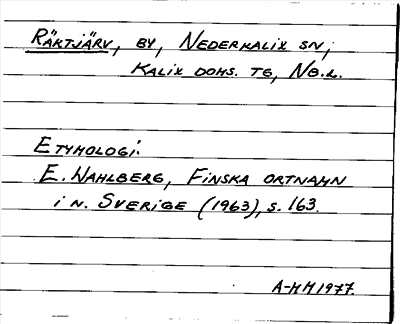 RÄKTJÄRV, BY, NEDERKALIX SN,
KALIX DOMS. TG, NB.L.
ETYMOLOGI:
E. WAHLBERG, FINSKA ORTNAMN
i N. SVERIGE (1963), S. 163.
A-MM1977.